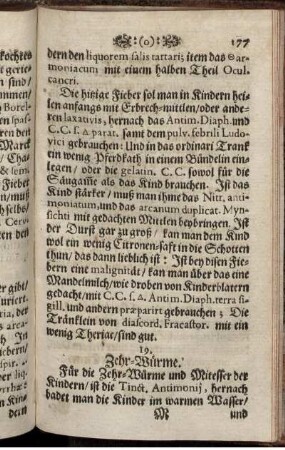 (o) 177
dern den liquorem salis tartari; item das Θar-
moniacum mit einem halben Theil Ocul.
cancri.
Die hitzige Fieber sol man in Kindern heı-
len anfangs mit Erbrech-mittlen/ oder ande-
ren laxativis, hernach das Antim. Diaph. und
C. C. s. a. parat. samt dem pulv. febrili Ludo-
vici gebrauchen: Und in das ordinari Tranck
ein wenig Pferdkath in einem Bündelin ein-
legen/ oder die gelatin. C. C. sowol für die
Säugamme als das Kind brauchen. Ist das
Kind stärker/ muß man ihme das Nitr. anti-
moniatum, und das arcanum duplicat. Myn-
sichti mit gedachten Mitlen beybringen. Ist
der Durst gar zu groß/ kan man dem Kind
wol ein wenig Citronen-saft in die Schotten
thun/ das dann lieblich ist: Ist bey disen Fie-
bern eine malignität/ kan man über das eine
Mandelmilch/ wie droben von Kinderblatern
gedacht/ mit C. C. s. a. Antim. Diaph. terra si-
gill. und andern præparirt gebrauchen; Die
Tränklein von diascord. Fracastor. mit ein
wenig Theriac/ sind gut.
19.
Zehr-Würme.
Für die Zehr-Würme und Mitesser der
Kindern/ ist die Tinct. Antimonij, hernach
badet man die Kinder im warmen Wasser/
M und